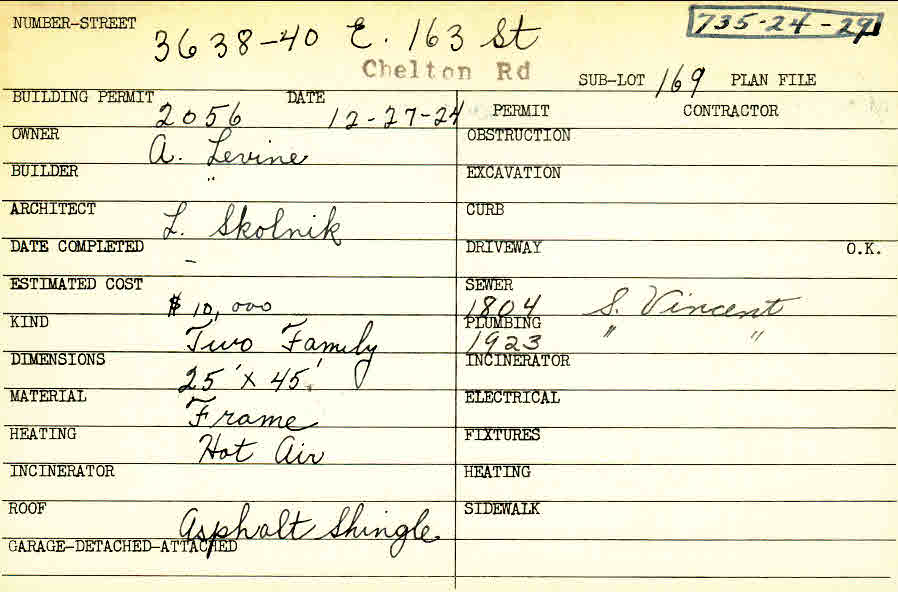 NUMBER-STREET 3638-40 E. 163 St 735-24-29
Chelton Rd
SUB-LOT 169 PLAN FILE
BUILDING PERMIT 2056 DATE 12-27-24
PERMIT CONTRACTOR
OWNER A. Levine
OBSTRUCTION
BUILDER "
EXCAVATION
ARCHITECT L. Skolnik
CURB
DATE COMPLETED -
DRIVEWAY O.K.
ESTIMATED COST $10,000
SEWER 1804 S. Vincent
KIND Two Family
PLUMBING 1923 " "
DIMENSIONS 25' x 45'
INCINERATOR
MATERIAL Frame
ELECTRICAL
HEATING Hot Air
FIXTURES
INCINERATOR
HEATING
ROOF Asphalt Shingle
SIDEWALK
GARAGE-DETACHED-ATTACHED